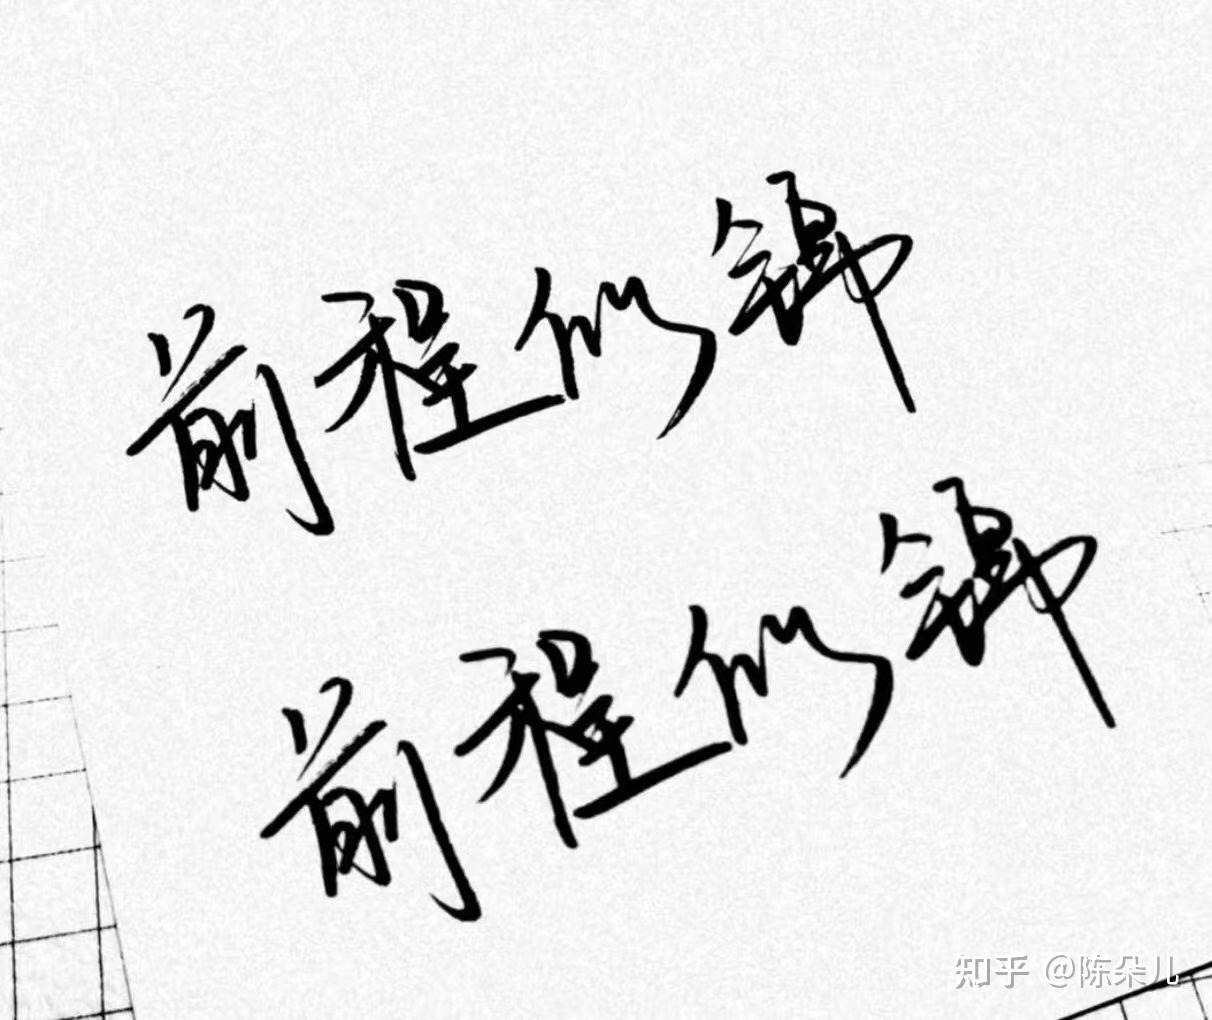 前程似锦
前程似锦
知乎 @陈朵儿